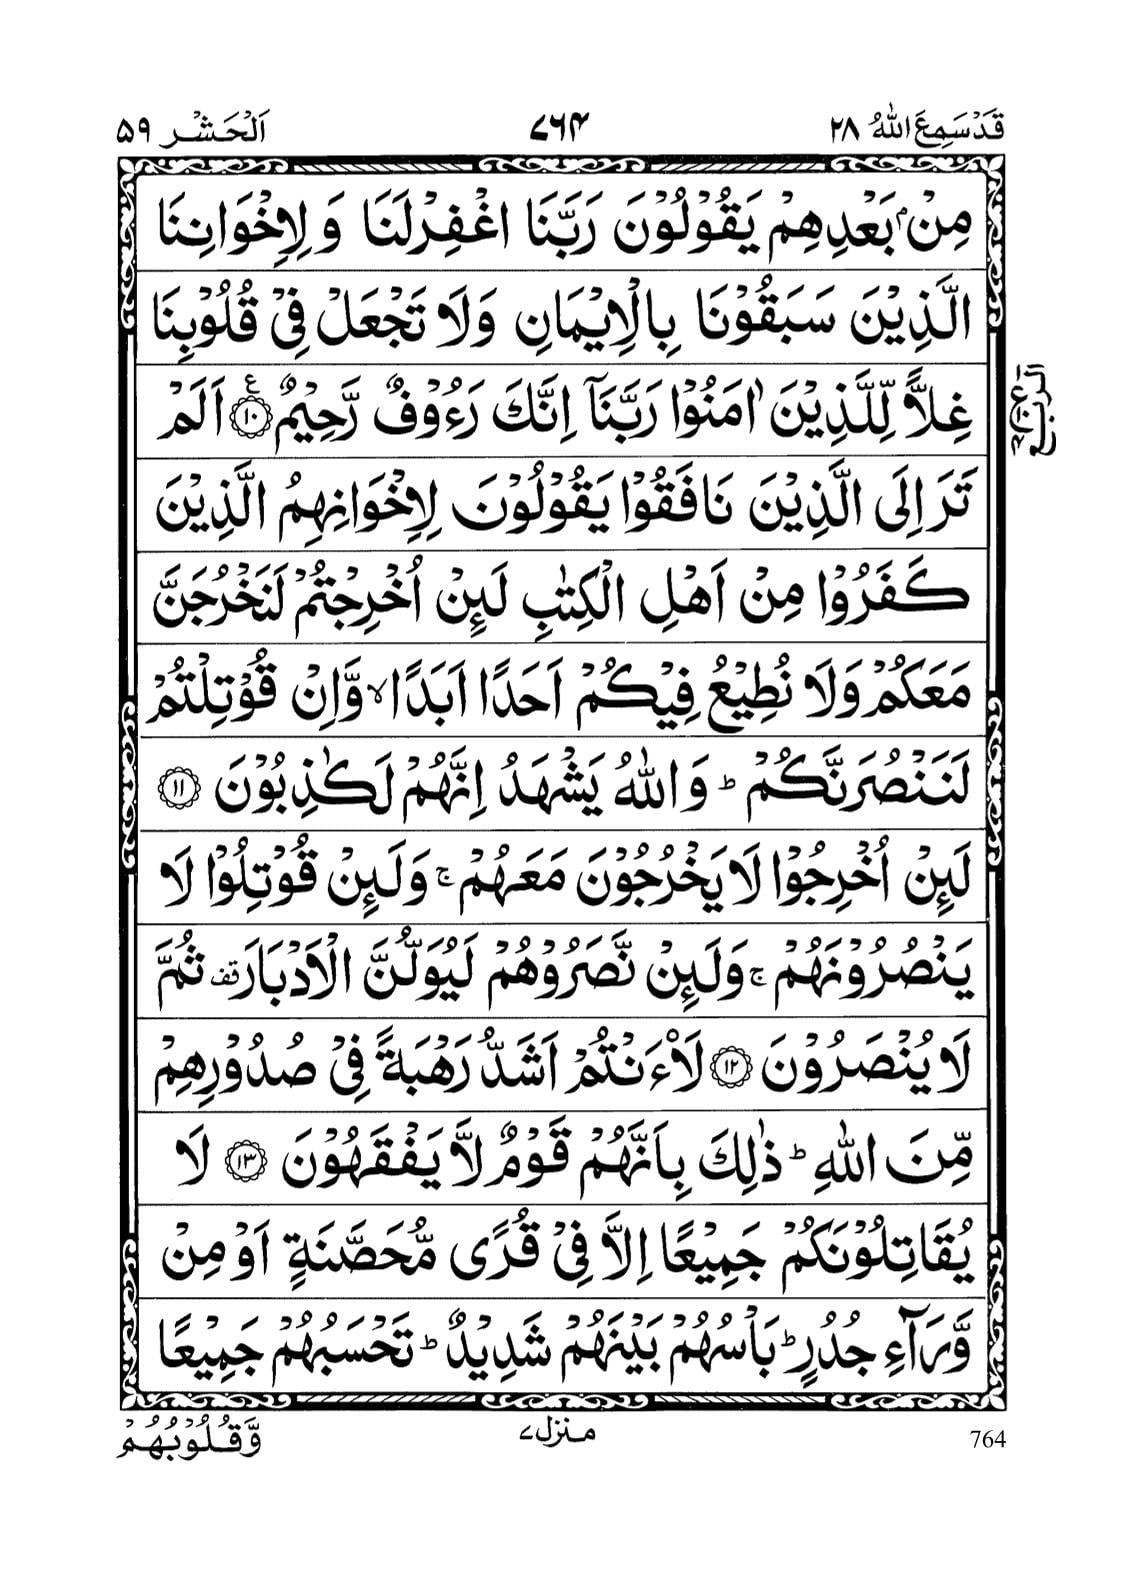 قَدْ سَمِعَ اللهُ ۲۸
۷۶۴
اَلْحَشْر ۵۹
مِنْۢ بَعْدِهِمْ يَقُوْلُوْنَ رَبَّنَا اغْفِرْلَنَا وَ لِاِخْوَانِنَا
الَّذِيْنَ سَبَقُوْنَا بِالْاِيْمَانِ وَلَا تَجْعَلْ فِىْ قُلُوْبِنَا
غِلًّا لِّلَّذِيْنَ اٰمَنُوْا رَبَّنَآ اِنَّكَ رَءُوْفٌ رَّحِيْمٌ ؑ ﴿۱۰﴾ اَلَمْ
تَرَ اِلَى الَّذِيْنَ نَافَقُوْا يَقُوْلُوْنَ لِاِخْوَانِهِمُ الَّذِيْنَ
كَفَرُوْا مِنْ اَهْلِ الْكِتٰبِ لَئِنْ اُخْرِجْتُمْ لَنَخْرُجَنَّ
مَعَكُمْ وَلَا نُطِيْعُ فِيْكُمْ اَحَدًا اَبَدًا ۙ وَّاِنْ قُوْتِلْتُمْ
لَنَنْصُرَنَّكُمْ ؕ وَاللهُ يَشْهَدُ اِنَّهُمْ لَكٰذِبُوْنَ ﴿۱۱﴾
لَئِنْ اُخْرِجُوْا لَا يَخْرُجُوْنَ مَعَهُمْ ۚ وَلَئِنْ قُوْتِلُوْا لَا
يَنْصُرُوْنَهُمْ ۚ وَلَئِنْ نَّصَرُوْهُمْ لَيُوَلُّنَّ الْاَدْبَارَ قف ثُمَّ
لَا يُنْصَرُوْنَ ﴿۱۲﴾ لَاْءَنْتُمْ اَشَدُّ رَهْبَةً فِىْ صُدُوْرِهِمْ
مِّنَ اللهِ ؕ ذٰلِكَ بِاَنَّهُمْ قَوْمٌ لَّا يَفْقَهُوْنَ ﴿۱۳﴾ لَا
يُقَاتِلُوْنَكُمْ جَمِيْعًا اِلَّا فِىْ قُرًى مُّحَصَّنَةٍ اَوْ مِنْ
وَّرَآءِ جُدُرٍ ؕ بَاْسُهُمْ بَيْنَهُمْ شَدِيْدٌ ؕ تَحْسَبُهُمْ جَمِيْعًا
الربع
764
منزل ۷
وَّقُلُوْبُهُمْ